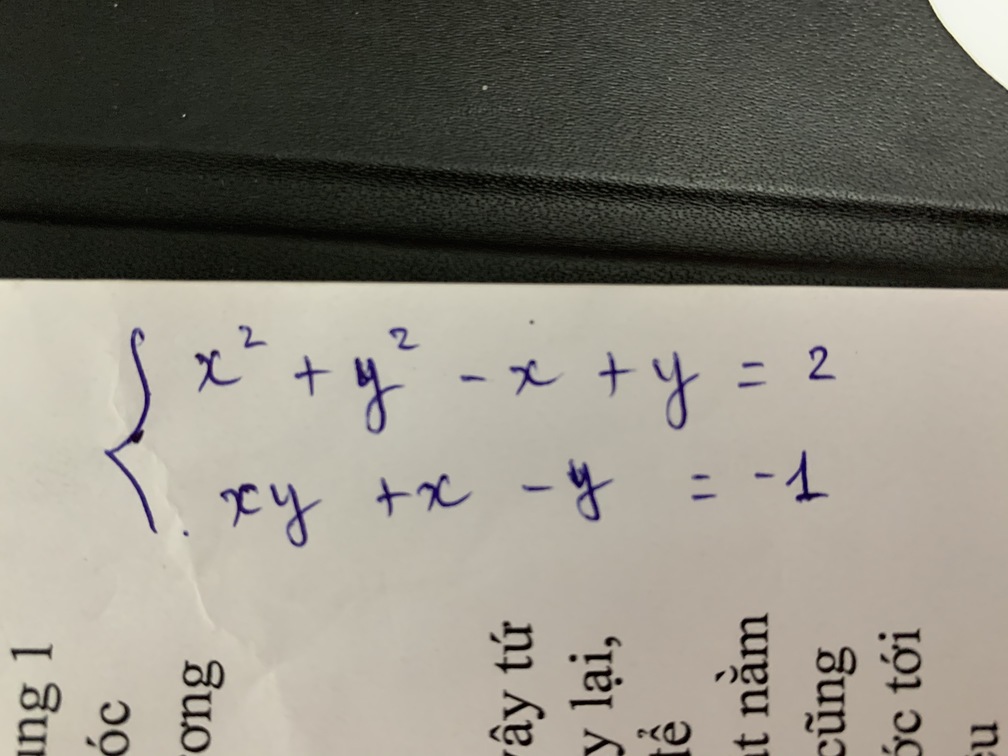 x² + y² - x + y = 2
xy + x - y = -1
ung 1
óc
ơng
vây tứ
y lại,
tể
ặt nằm
cũng
ớc tới